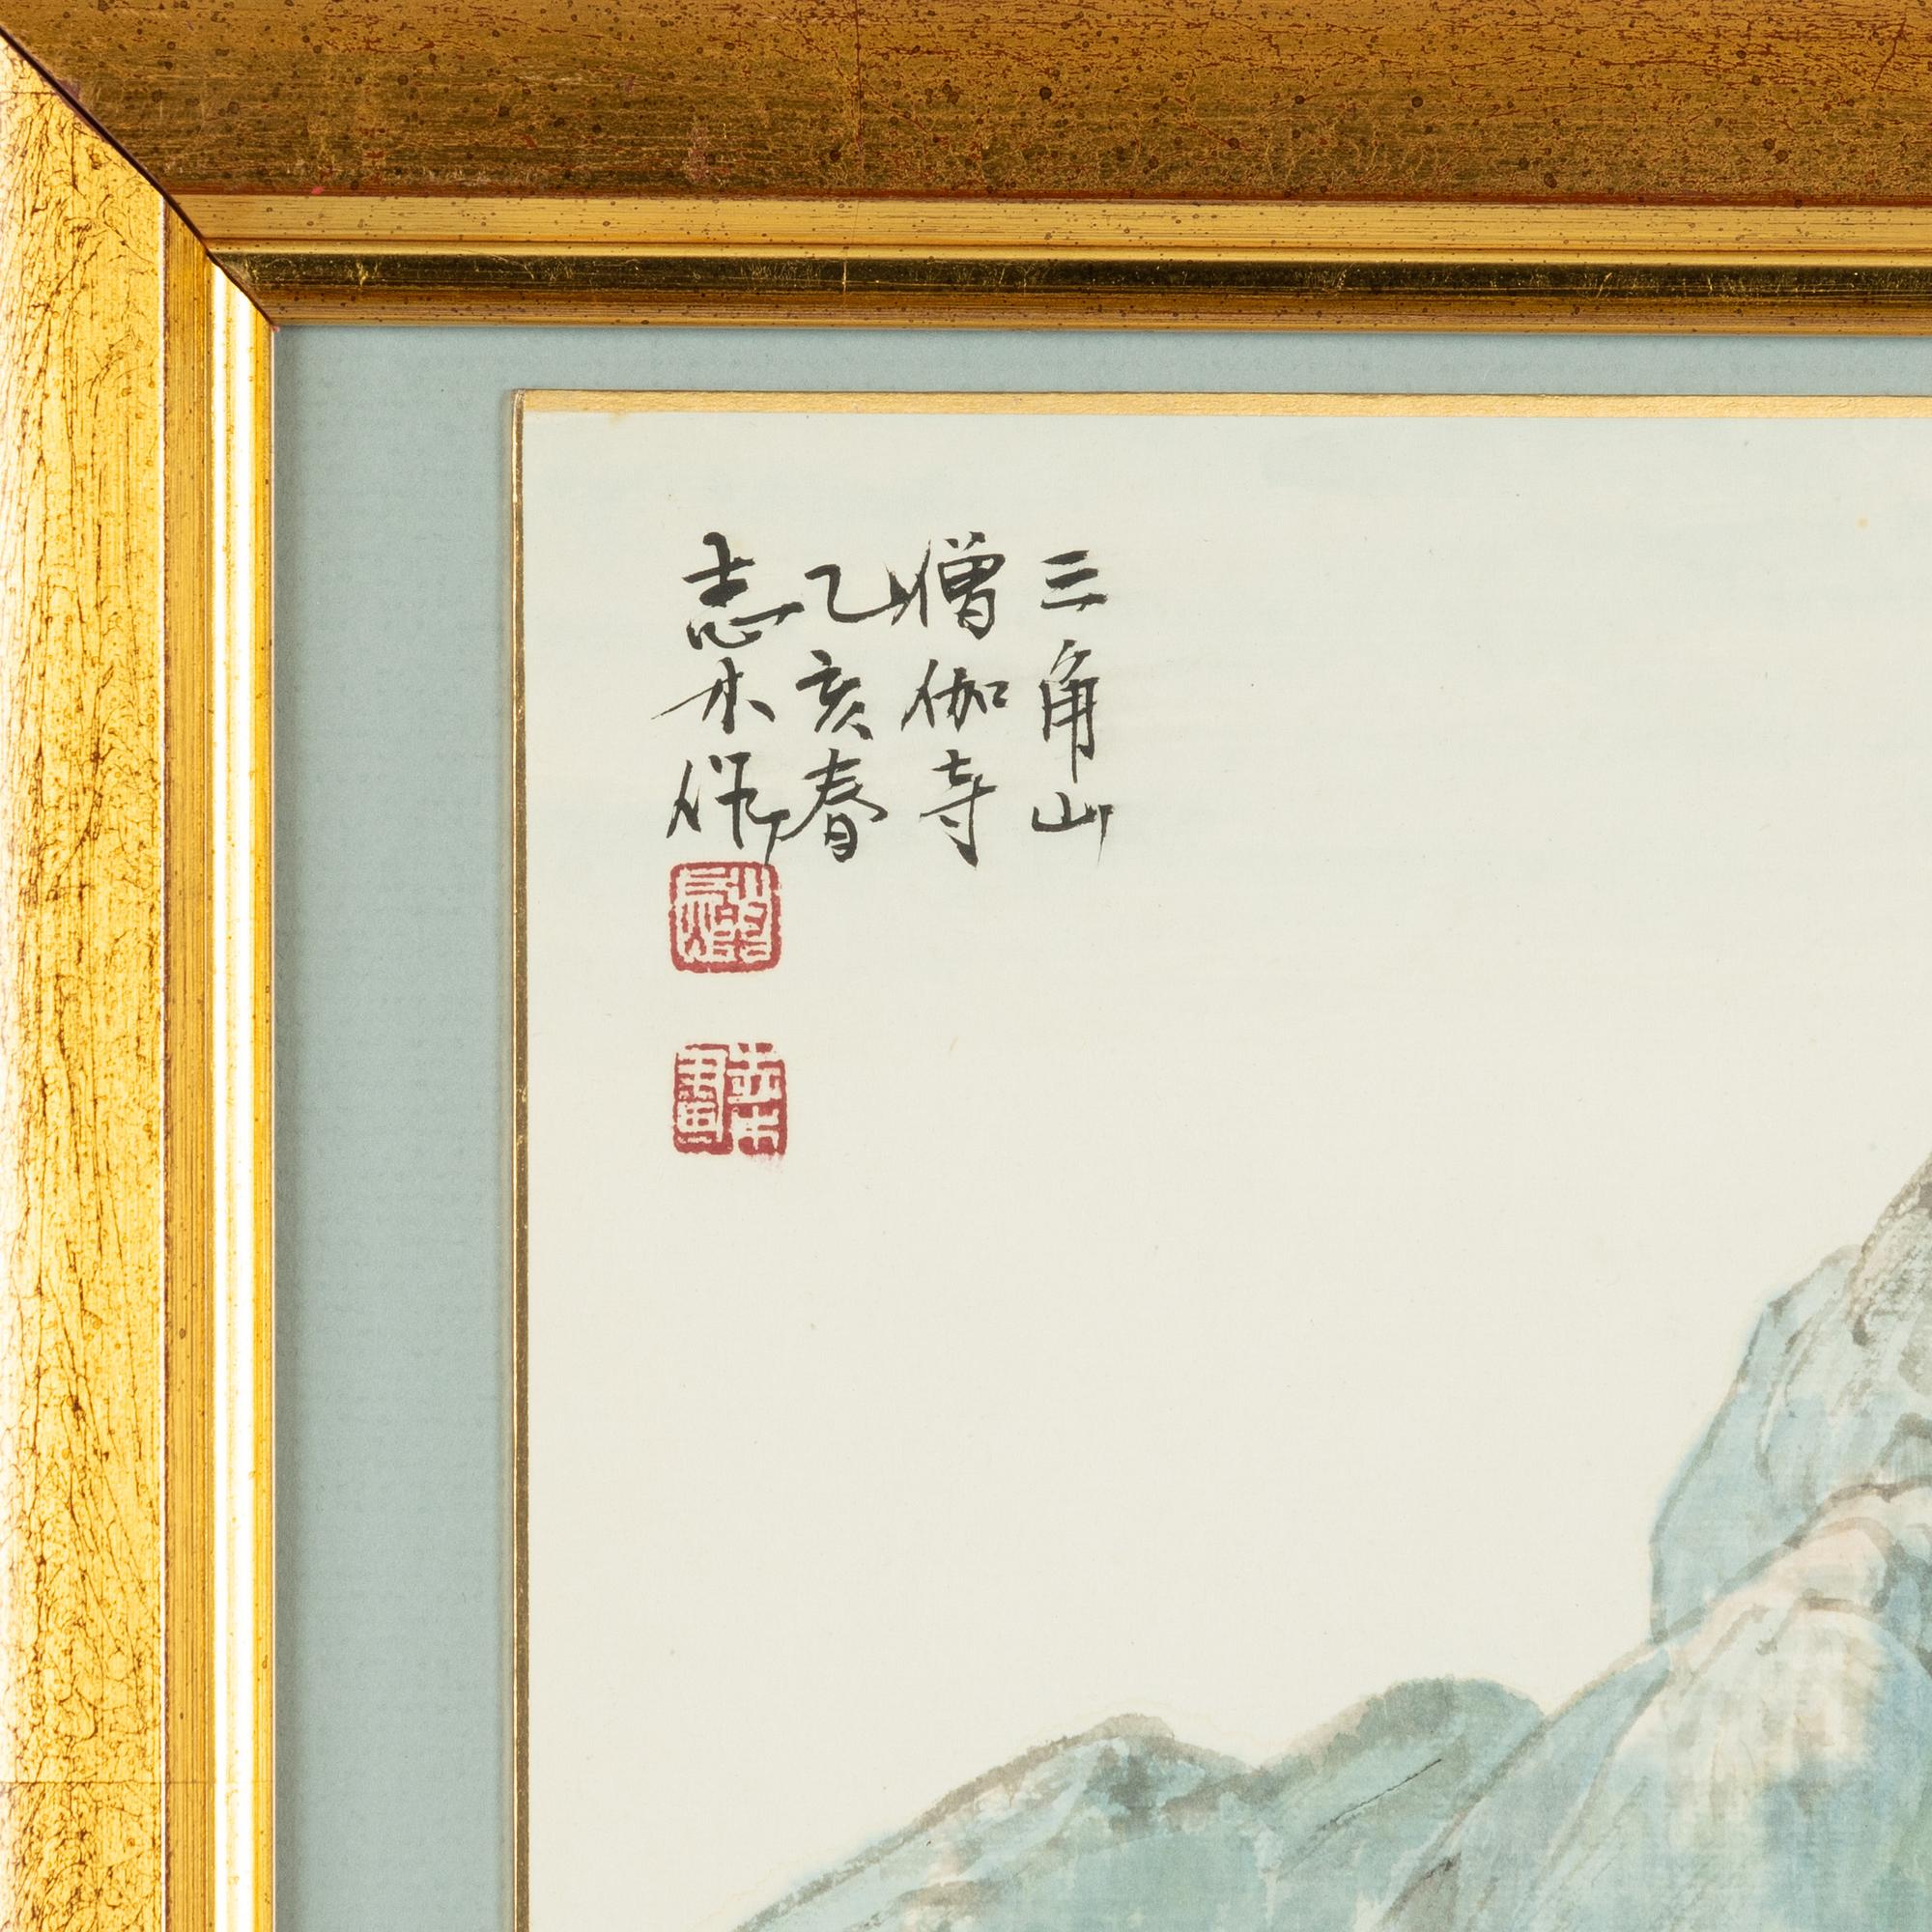 三角山
僧伽寺
乙亥春
志木作